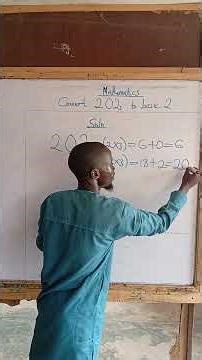 Mathematics
Convert 202₃ to base 2
Soln
202 (2x3)=6+0=6
x3)=18+2=20